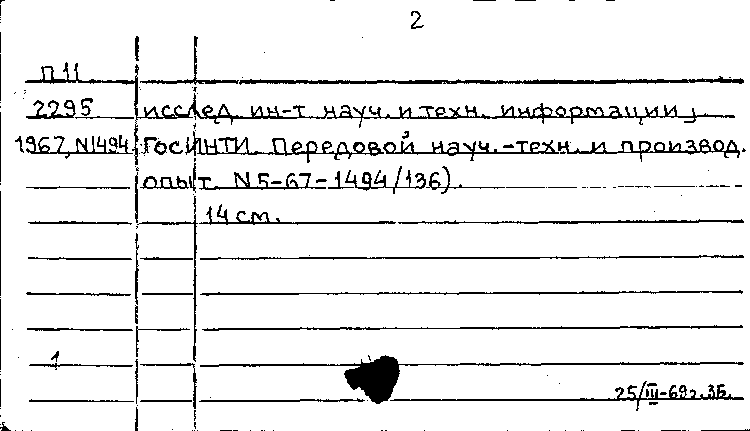 2
П 11
2295 исслед. ин-т науч. и техн. информации,
1967, N1494. ГОСИНТИ. Передовой науч.-техн. и производ.
опыт. N 5-67-1494/136).
14 см.
1
25/III-69г. ЗБ.